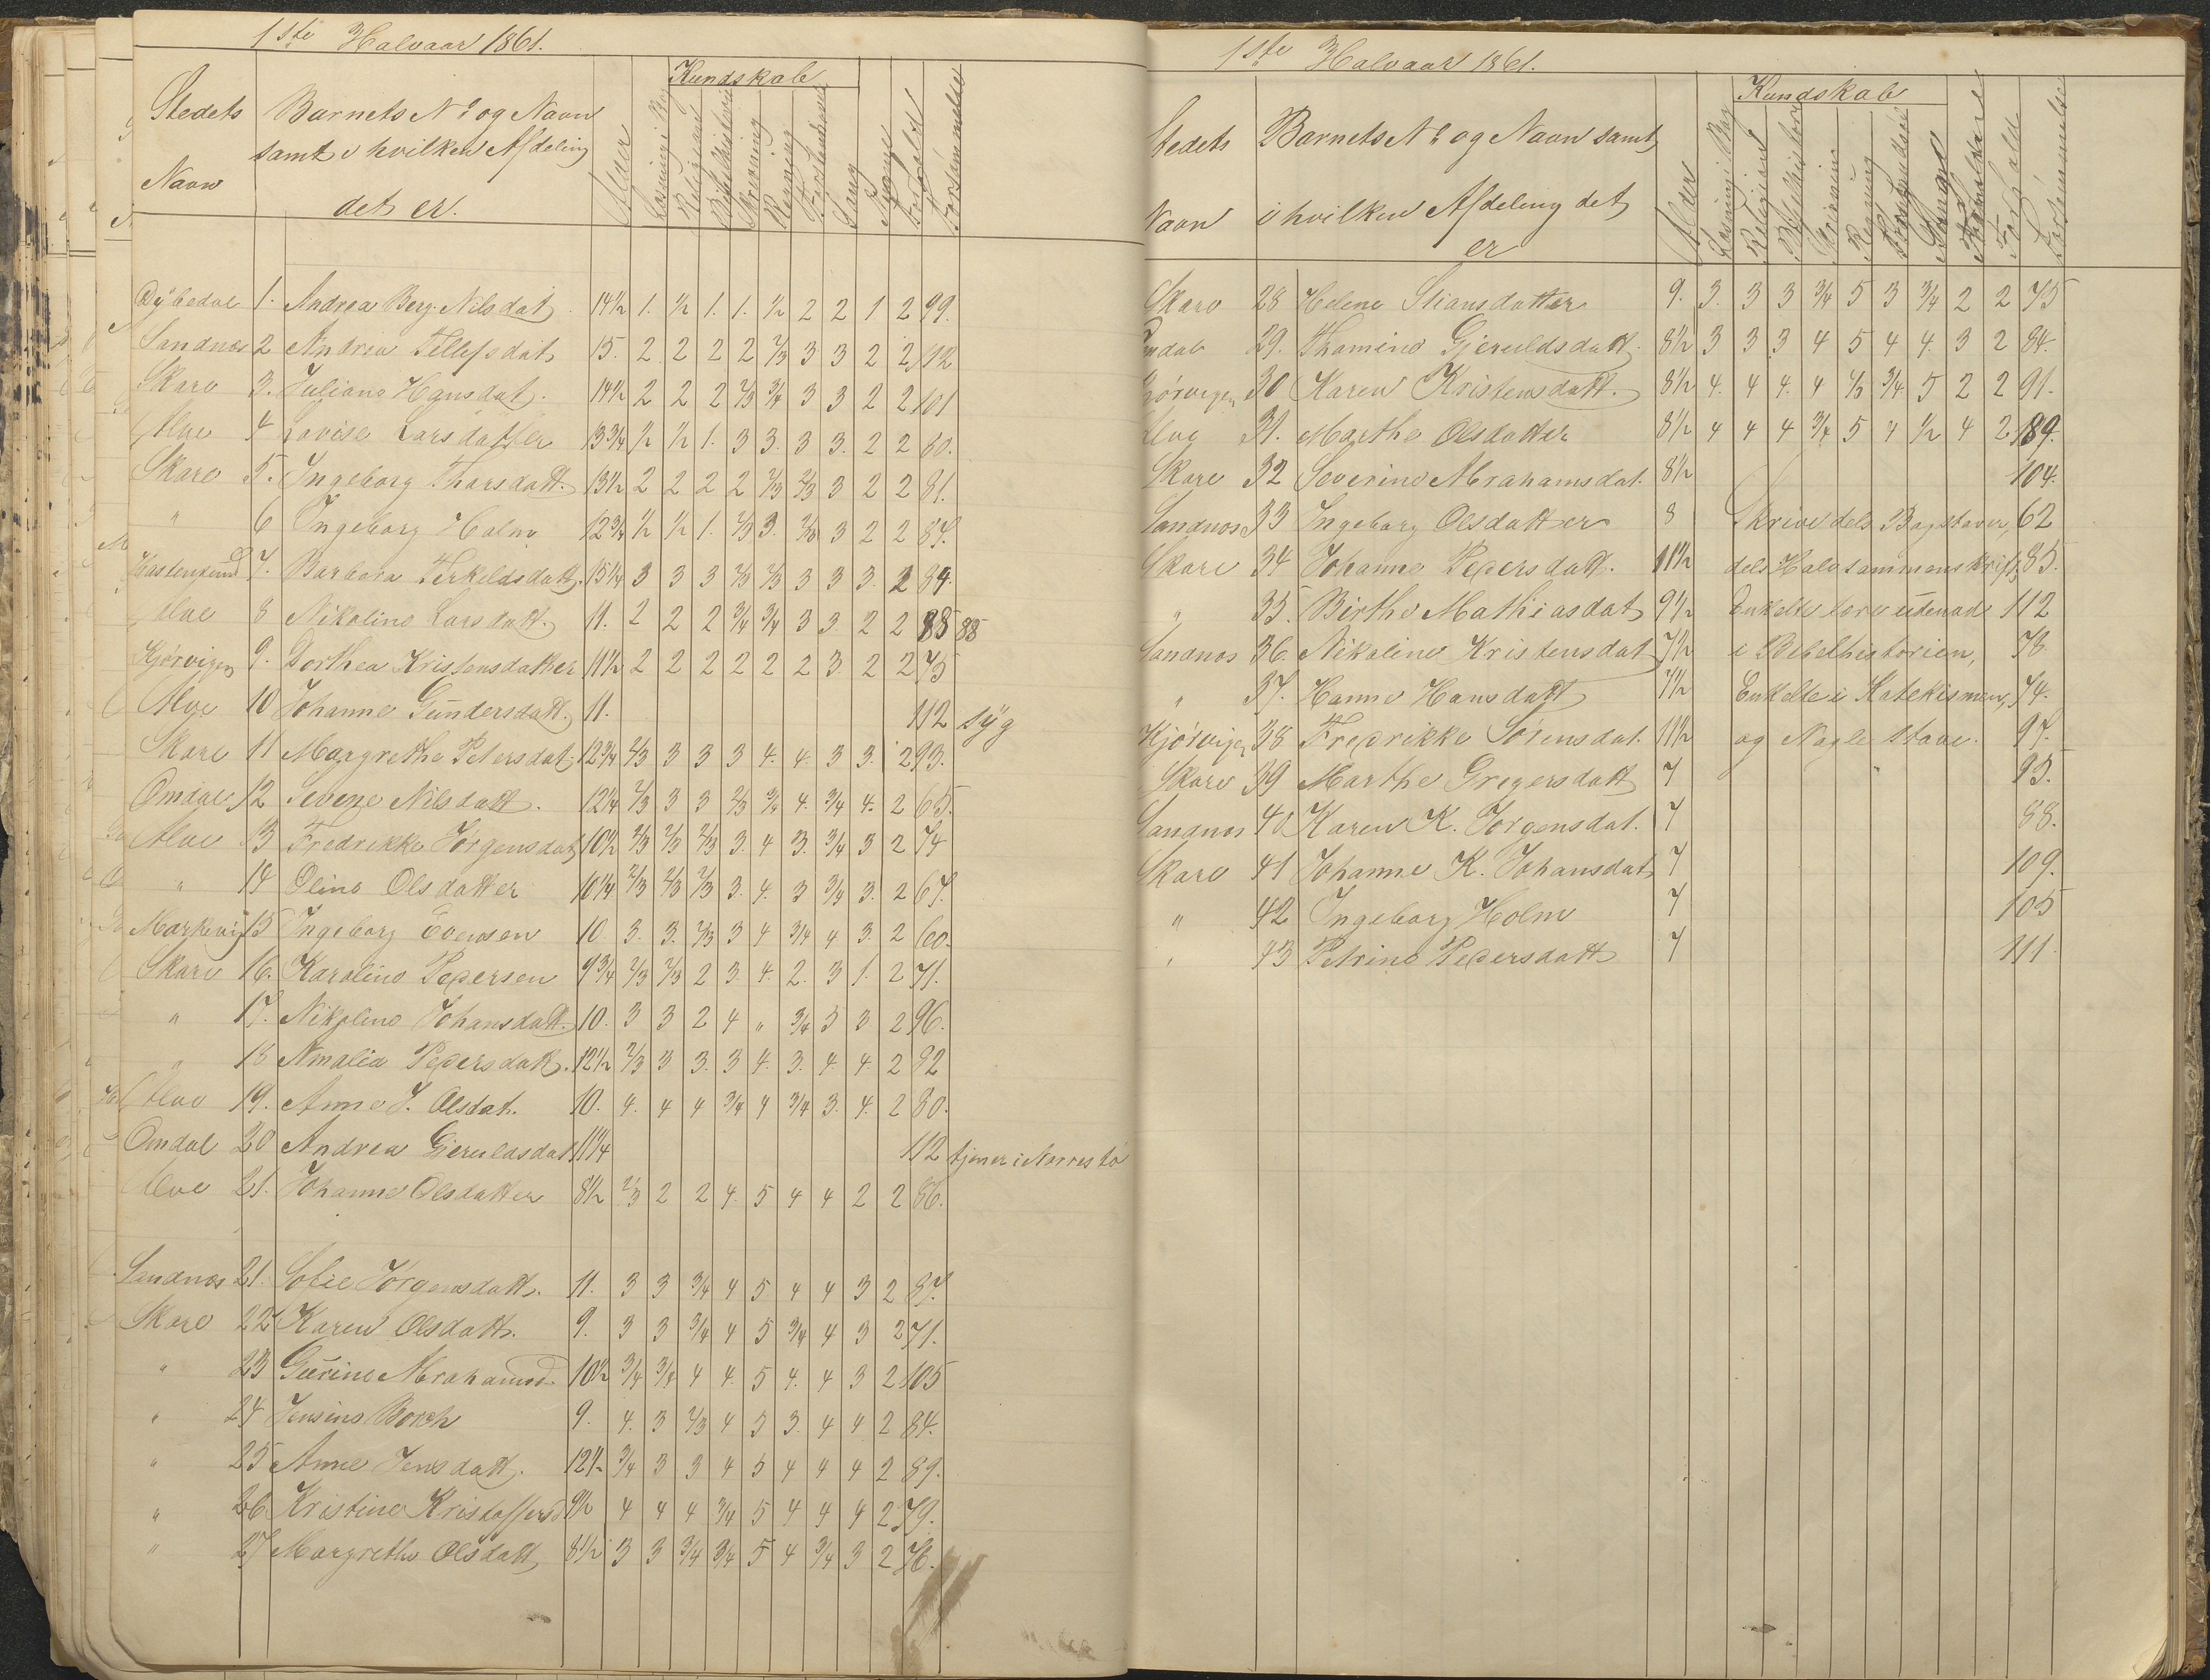 1ste Halvaar 1861.
Kundskab
Stedets Navn
Barnets No og Navn samt i hvilken Afdeling det er.
Alder
Læsning i Bog
Religion
Bibelhistorie
Skrivning
Regning
Sang
Forhold
Forsømmelse
Dybedal 1. Andrea Berg Nilsdat. 14½ 1. ½ 1. 1. ½ 2 2 1 2 99.
Sandnæs 2 Andrea Tellefsdat. 15. 2 2 2 2 2/3 3 3 2 2 112
Skare 3. Juliane Hansdat. 14½ 2 2 2 2/3 3/4 3 3 2 2 101
Alve 4 Lovise Larsdatter 13¾ ½ ½ 1. 3 3. 3 3. 2 2 80.
Skare 5. Ingeborg Thorsdatt. 13½ 2 2 2 2 2/3 2/3 3 2 2 81.
" 6 Ingeborg Holm 12¾ ½ ½ 1. 2/3 3. 2/3 3 2 2 87.
7. Barbara Terkeldsdatt. 15¼ 3 3 3 2/3 2/3 3 3 3. 2 89.
Alve 8 Nikoline Larsdatt. 11. 2 2 2 3/4 3/4 3 3 2 2 88 88
Kjørvigen 9. Dorthea Kristensdatter 11½ 2 2 2 2 2 2 3. 2 2 75
Alve 10 Johanne Gundersdatt. 11. 112 syg
Skare 11 Margrethe Petersdat. 12¾ 2/3 3 3 3 4. 4. 3 3. 2 93.
Omdal 12 Sevene Nilsdatt. 12¼ 2/3 3 3 2/3 3/4 4. 3/4 4. 2 65.
Alve 13 Fredrikke Jørgensdat 10½ 2/3 2/3 2/3 3. 4 3. 3/4 3 2 74
" 14 Oline Olsdatter 10¼ 2/3 2/3 2/3 3. 4. 3 3/4 3. 2 67.
Markevig 15 Ingeborg Evensen 10. 3. 3. 2/3 3 4 3/4 4 3. 2 60.
Skare 16. Karoline Pedersen 9¾ 2/3 2/3 2 3. 4. 2. 3 1. 2 71.
" 17. Nikoline Johansdatt. 10. 3 3 2 4 " 3/4 5 3 2 96.
" 18 Amalia Pedersdatt. 12½ 2/3 3 3. 3 4. 3. 4. 4. 2 92
Alve 19. Anne J. Olsdat. 10. 4. 4 4 3/4 4 3/4 3. 4. 2 80.
Omdal 20 Andrea Gjeruldsdat 11¼ 112 tjener i Narrestø
Alve 21. Johanne Olsdatter 8½ 2/3 2 2 4. 5 4 4 2 2 86.
Sandnæs 21. Sofie Jørgensdatt. 11. 3 3 3/4 4 5 4 4 3 2 87.
Skare 22 Karen Olsdatt. 9. 3 3 3/4 4 5 3/4 4 3 2 71.
" 23 Gurine Abrahamsd. 10½ 3/4 3/4 4 4. 5 4. 4 3 2 105
" 24 Jensine Borch 9. 4. 3 2/3 4 5 3. 4 4 2 84.
" 25 Anne Jensdatt. 12½ 3/4 3 3 4 5 4 4 4 2 89.
" 26 Kristine Kristoffersd 9½ 4 4 4 3/4 5 4 4 4 2 79.
" 27 Margrethe Olsdatt 8½ 3 3 3/4 3/4 5 4 3/4 3 2 76.
1ste Halvaar 1861.
Kundskab
Stedets Navn
Barnets No og Navn samt i hvilken Afdeling det er
Alder
Læsning i Bog
Religion
Bibelhistorie
Skrivning
Regning
Sang
Forhold
Forsømmelse
Skare 28 Helene Stiansdatter 9. 3. 3 3 3/4 5 3 3/4 2 2 75
Omdal 29. Thomine Gjeruldsdatt. 8½ 3 3 3 4 5 4 4. 3 2 84.
Kjørvigen 30 Karen Kristensdatt. 8½ 4. 4 4. 4 4/5 3/4 5 2 2 91.
Alve 31. Marthe Olsdatter 8½ 4 4 4 3/4 5 4 ½ 4 2 89.
Skare 32 Severine Abrahamsdat. 8½ 104.
Sandnæs 33 Ingeborg Olsdatter 8 Skrive dels Bogstaver, 62
Skare 34 Johanne Pedersdatt. 11½ dels Halv sammenskrift, 85.
" 35. Birthe Mathiasdat 9½ Enkelte lære udenad 112
Sandnæs 36. Nikoline Kristensdat 7½ i Bibelhistorien, 78
" 37. Hanne Hansdatt 7½ Enkelte i Katekismen, 74.
Kjørvigen 38 Fredrikke Sørensdat. 11½ og Nogle stave. 97.
Skare 39 Marthe Gregersdatt 7 95.
Sandnæs 40 Karen K. Jørgensdat. 7 88.
Skare 41 Johanne K. Johansdat 7 109.
" 42 Ingeborg Holm 7 105
" 43 Petrine Pedersdatt 7 111.